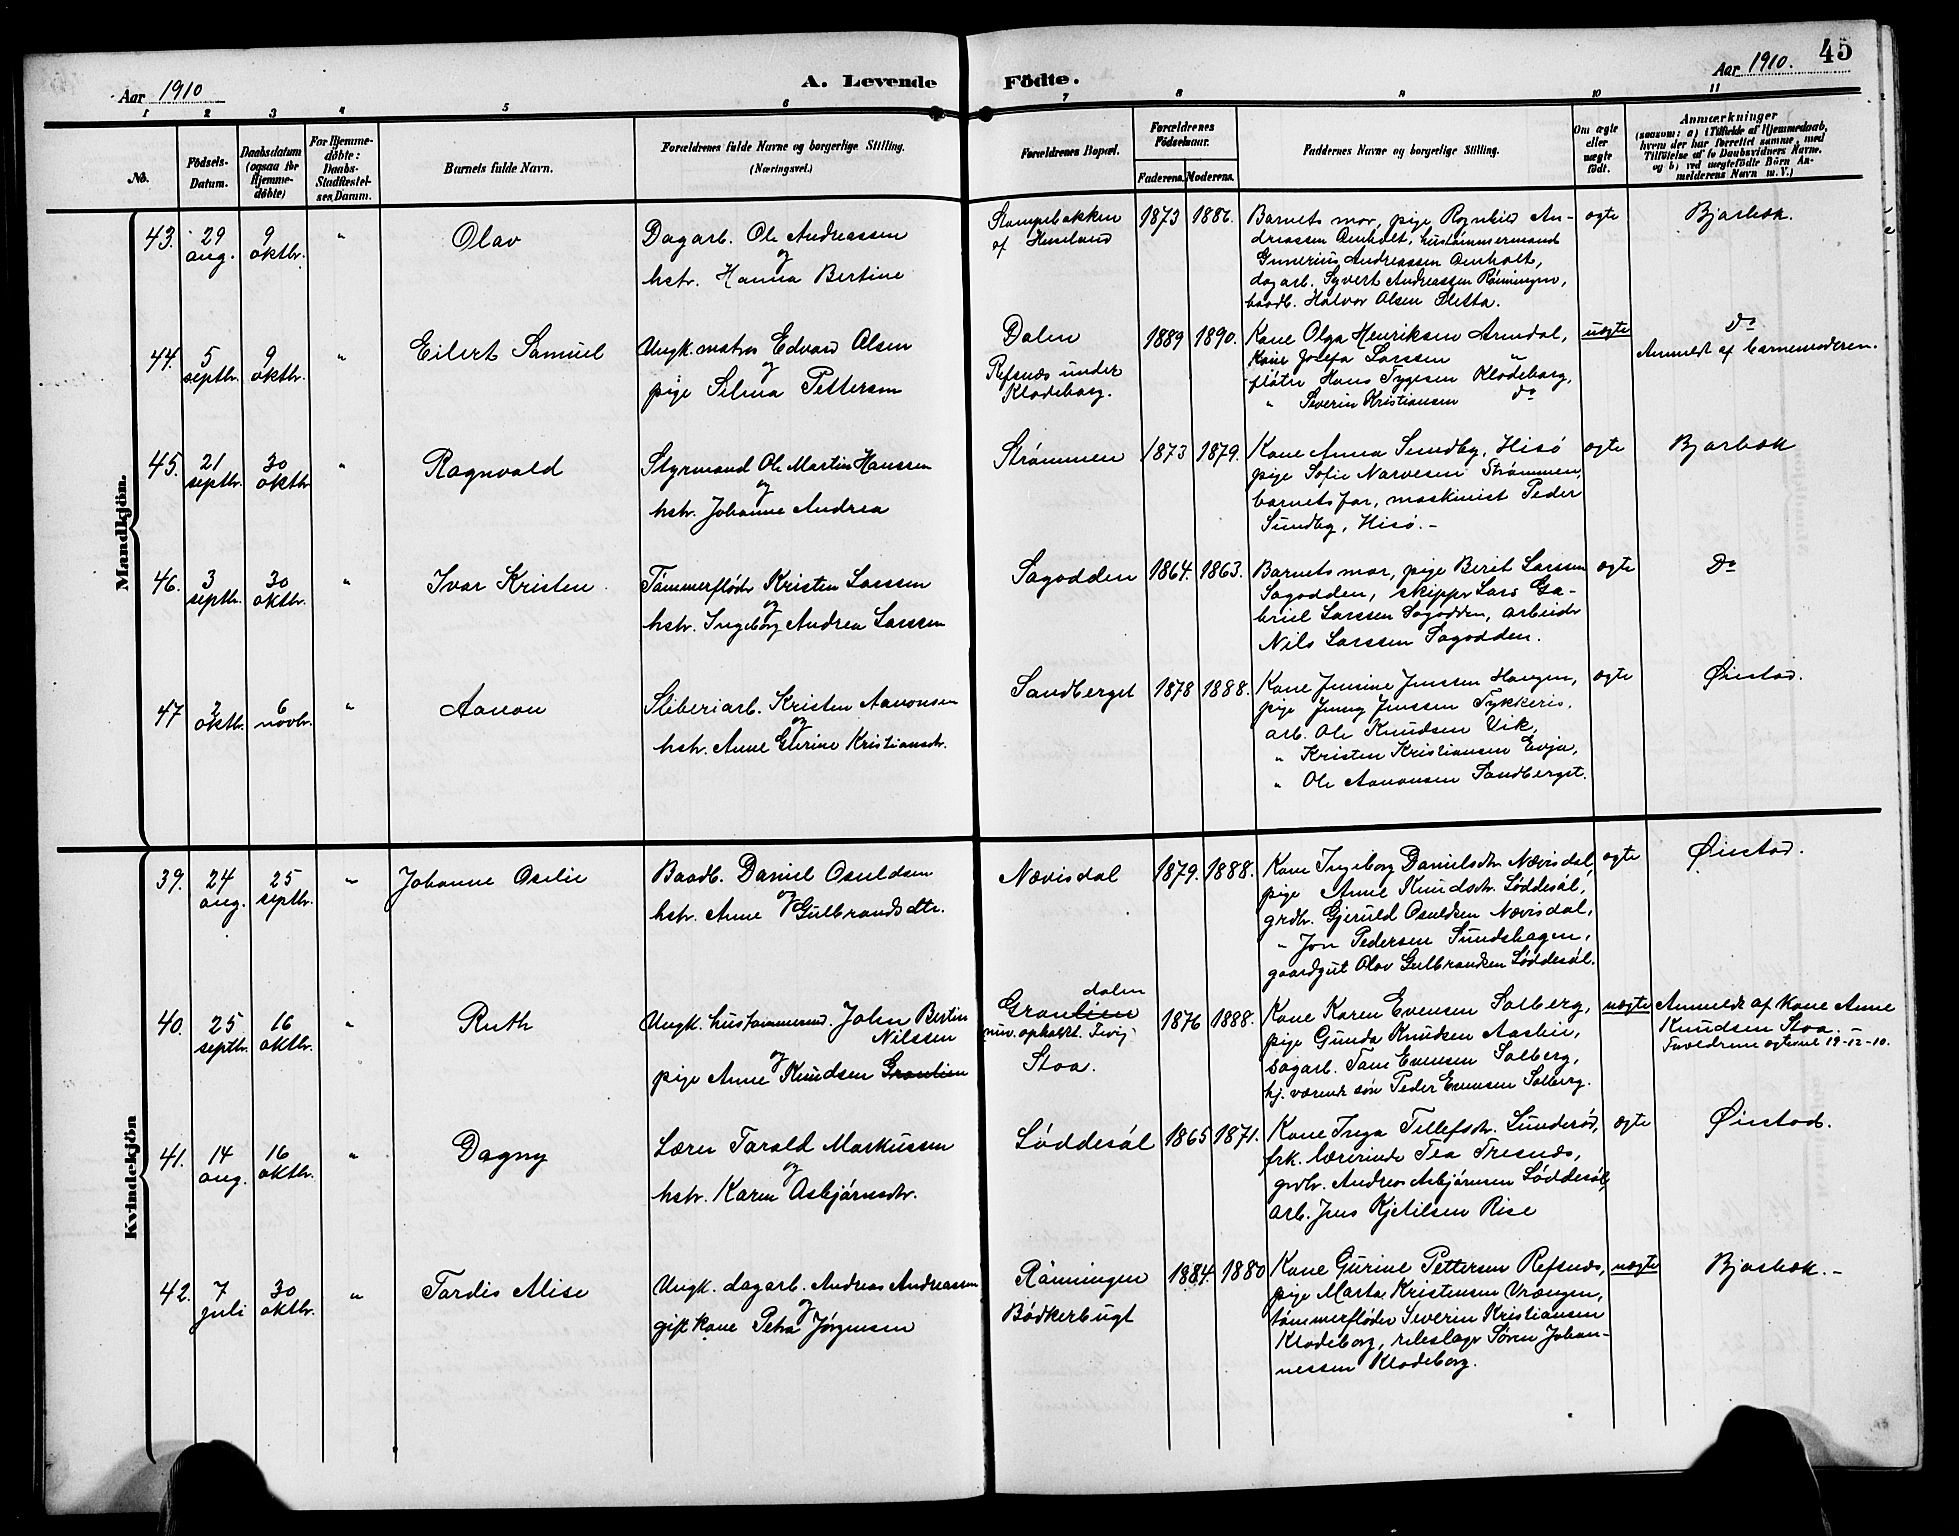 45
Aar 1910
A. Levende
Födte.
Aar 1910.
1 2 3 4 5 6 7 8 9 10 11
No.
Födsels-
Datum.
Daabsdatum
(ogsaa for
Hjemme-
døbte)
For Hjemme-
döbte:
Daabs-
Stadfæstel-
ses Datum.
Barnets fulde Navn.
Forældrenes fulde Navne og borgerlige Stilling.
(Næringsvei.)
Forældrenes Bopæl.
Forældrenes
Födselsaar.
Faderens. Moderens.
Faddernes Navne og borgerlige Stilling.
Om ægte
eller
uægte
födt.
Anmærkninger
(saasom: a) i Tilfælde af Hjemmedaab,
hvem der har forrettet samme, med
Tilföielse af to Daabsvidners Navne,
og b) ved uægtefödte Börn An-
melderens Navn m. V.)
Mandkjön.
43.
29
aug.
9
oktbr.
"
Olav
Dagarb. Ole Andreassen
og
hstr. Hanna Bertine
Stampebakken
af Huseland
1873
1886.
Barnets mor, pige Rognhild An-
dreassen Aaholt, hustømmermand
Gunerius Andreassen Aaholt,
dagarb. Syvert Andreassen Rønningen,
baadb. Halvor Olsen Sletta.
ægte
Bjorbæk.
44.
5
septbr.
9
oktbr.
"
Eilert Samuel
Ungk. matros Edvard Olsen
og
pige Selma Pettersen
Dalen
Refsnæs under
Klodeborg.
1889
1890.
Kone Olga Henriksen Arendal,
Kone Josefa Larssen "
fløter Hans Tygesen Klodeborg,
" Severin Kristiansen do
uægte
Do
Anmeldt af barnemoderen.
45.
21
septbr.
30
oktbr
"
Ragnvald
Styrmand Ole Martin Hanssen
og
hstr. Johanne Andrea
Strømmen
1873
1879.
Kone Anna Sundby, Hisø
pige Sofie Narvesen Strømmen,
barnets far, maskinist Peder
Sundby, Hisø. -
ægte
Bjorbæk
46.
3
septbr.
30
oktbr.
"
Ivar Kristen
Tømmerfløder Kristen Larssen
og
hstr. Ingeborg Andrea Larssen
Sagodden
1864.
1863.
Barnets mor, pige Berit Larssen
Sagodden, skipper Lars Ga-
briel Larssen Sagodden, arbeider
Nils Larssen Sagodden.
ægte
Do
47
2
oktbr.
6
novbr.
"
Aanon
Sliberiarb. Kristen Aanonsen
og
hstr. Anne Gurine Kristiansdtr.
Sandberget
1878
1888.
Kone Jensine Jenssen Haugen,
pige Jenny Jenssen Tykkeris,
arb. Ole Knudsen Vik,
" Kristen Kristiansen Evje,
" Ole Aanonsen Sandberget.
ægte
Øiestad.
Kvindekjön
39.
24
aug.
25
septbr.
"
Johanne Oselie
Baadb. Daniel Osuldsen
og
hstr. Anne Gulbrandsdtr.
Nævisdal
1879.
1888.
Kone Ingeborg Danielsdtr Nævisdal,
pige Anne Knudsdtr. Løddesøl,
grdbr. Gjeruld Osuldsen Nævisdal,
" Jon Pedersen Sundshagen,
gaardgut Olav Gulbrandsen Løddesøl.
ægte
Øiestad.
40.
25
septbr.
16
oktbr.
"
Ruth
Ungk. hustømmermd. John Bertin
Nilssen
og
pige Anne Knudsen Granlien
dalen
Granlien
nuv. opholdst.
Stoa.
1876
1888.
Kone Karen Evensen Solberg,
pige Gunda Knudsen Aasbie,
sagarb. Tom Evensen Solberg,
hj. værende søn Peder Evensen Solberg.
uægte
Anmeldt af kone Anne
Knudsen Stoa. -
Forældrene ægteviet 19-12-10.
41.
14
aug.
16
oktbr.
"
Dagny
Lærer Tarald Markussen
og
hstr. Karen Asbjørnsdtr.
Løddesøl
1865
1871.
Kone Inga Tellefsdtr. Lunderød,
frk. lærerinde Tea Tresnes,
grdbr. Andreas Asbjørnsen Løddesøl,
arb. Jens Kjetilsen Rise
ægte
Øiestad.
42.
7
juli
30
oktbr.
"
Tordis Alise
Ungk. dagarb. Andreas Andreassen
og
gift kone Petra Jørgensen
Rønningen
Bødkerbugt
1884.
1880
Kone Gurine Pettersen Refsnæs,
pige Marta Kristensen Vrængen,
tømmerfløder Severin Kristiansen
Klodeborg, Søren Johan-
nessen Klodeborg.
uægte
Bjorbæk. -